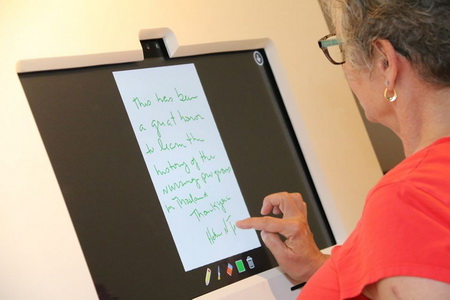 This has been
a great honor
to learn the
history of the
nursing programs
in Thailand
Thank you